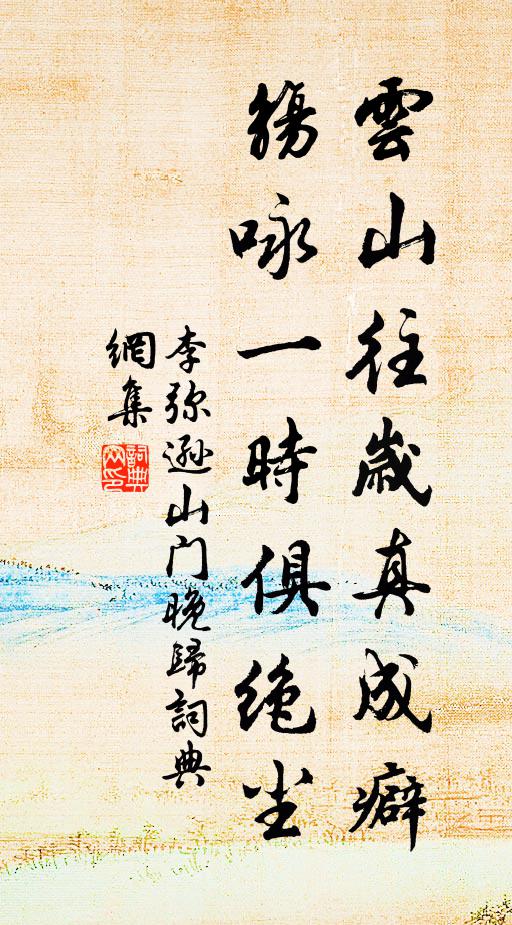 雲山往歲真成癖
觴咏一時俱絶尘
李弥遜山门晚歸詞典
網集
詞典网印